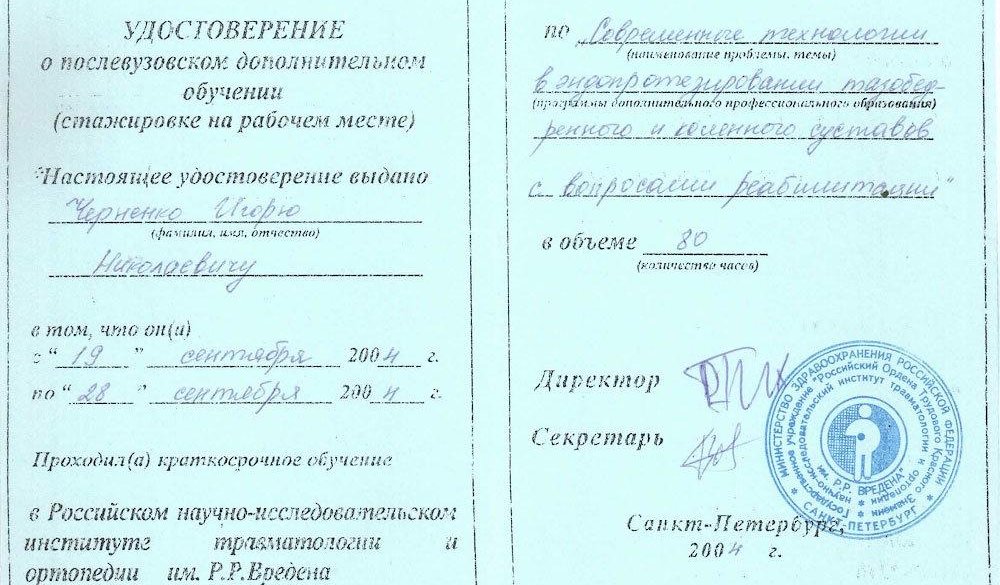 УДОСТОВЕРЕНИЕ
о послевузовском дополнительном
обучении
(стажировке на рабочем месте)
Настоящее удостоверение выдано
Черненко Игорю
(фамилия, имя, отчество)
Николаевичу
в том, что он(а)
с " 19 " сентября 2004 г.
по " 28 " сентября 2004 г.
Проходил(а) краткосрочное обучение
в Российском научно-исследовательском
институте травматологии и
ортопедии им. Р.Р.Вредена
по "Современные технологии
(наименование проблемы, темы)
в эндопротезировании тазобед-
(программы дополнительного профессионального образования)
ренного и коленного суставов
с вопросами реабилитации"
в объеме 80
(количество часов)
Директор
Секретарь
Санкт-Петербург,
2004 г.
МИНИСТЕРСТВО ЗДРАВООХРАНЕНИЯ РОССИЙСКОЙ ФЕДЕРАЦИИ
САНКТ-ПЕТЕРБУРГ
Государственное учреждение "Российский Ордена Трудового Красного Знамени
научно-исследовательский институт травматологии и ортопедии
им. Р.Р. ВРЕДЕНА"